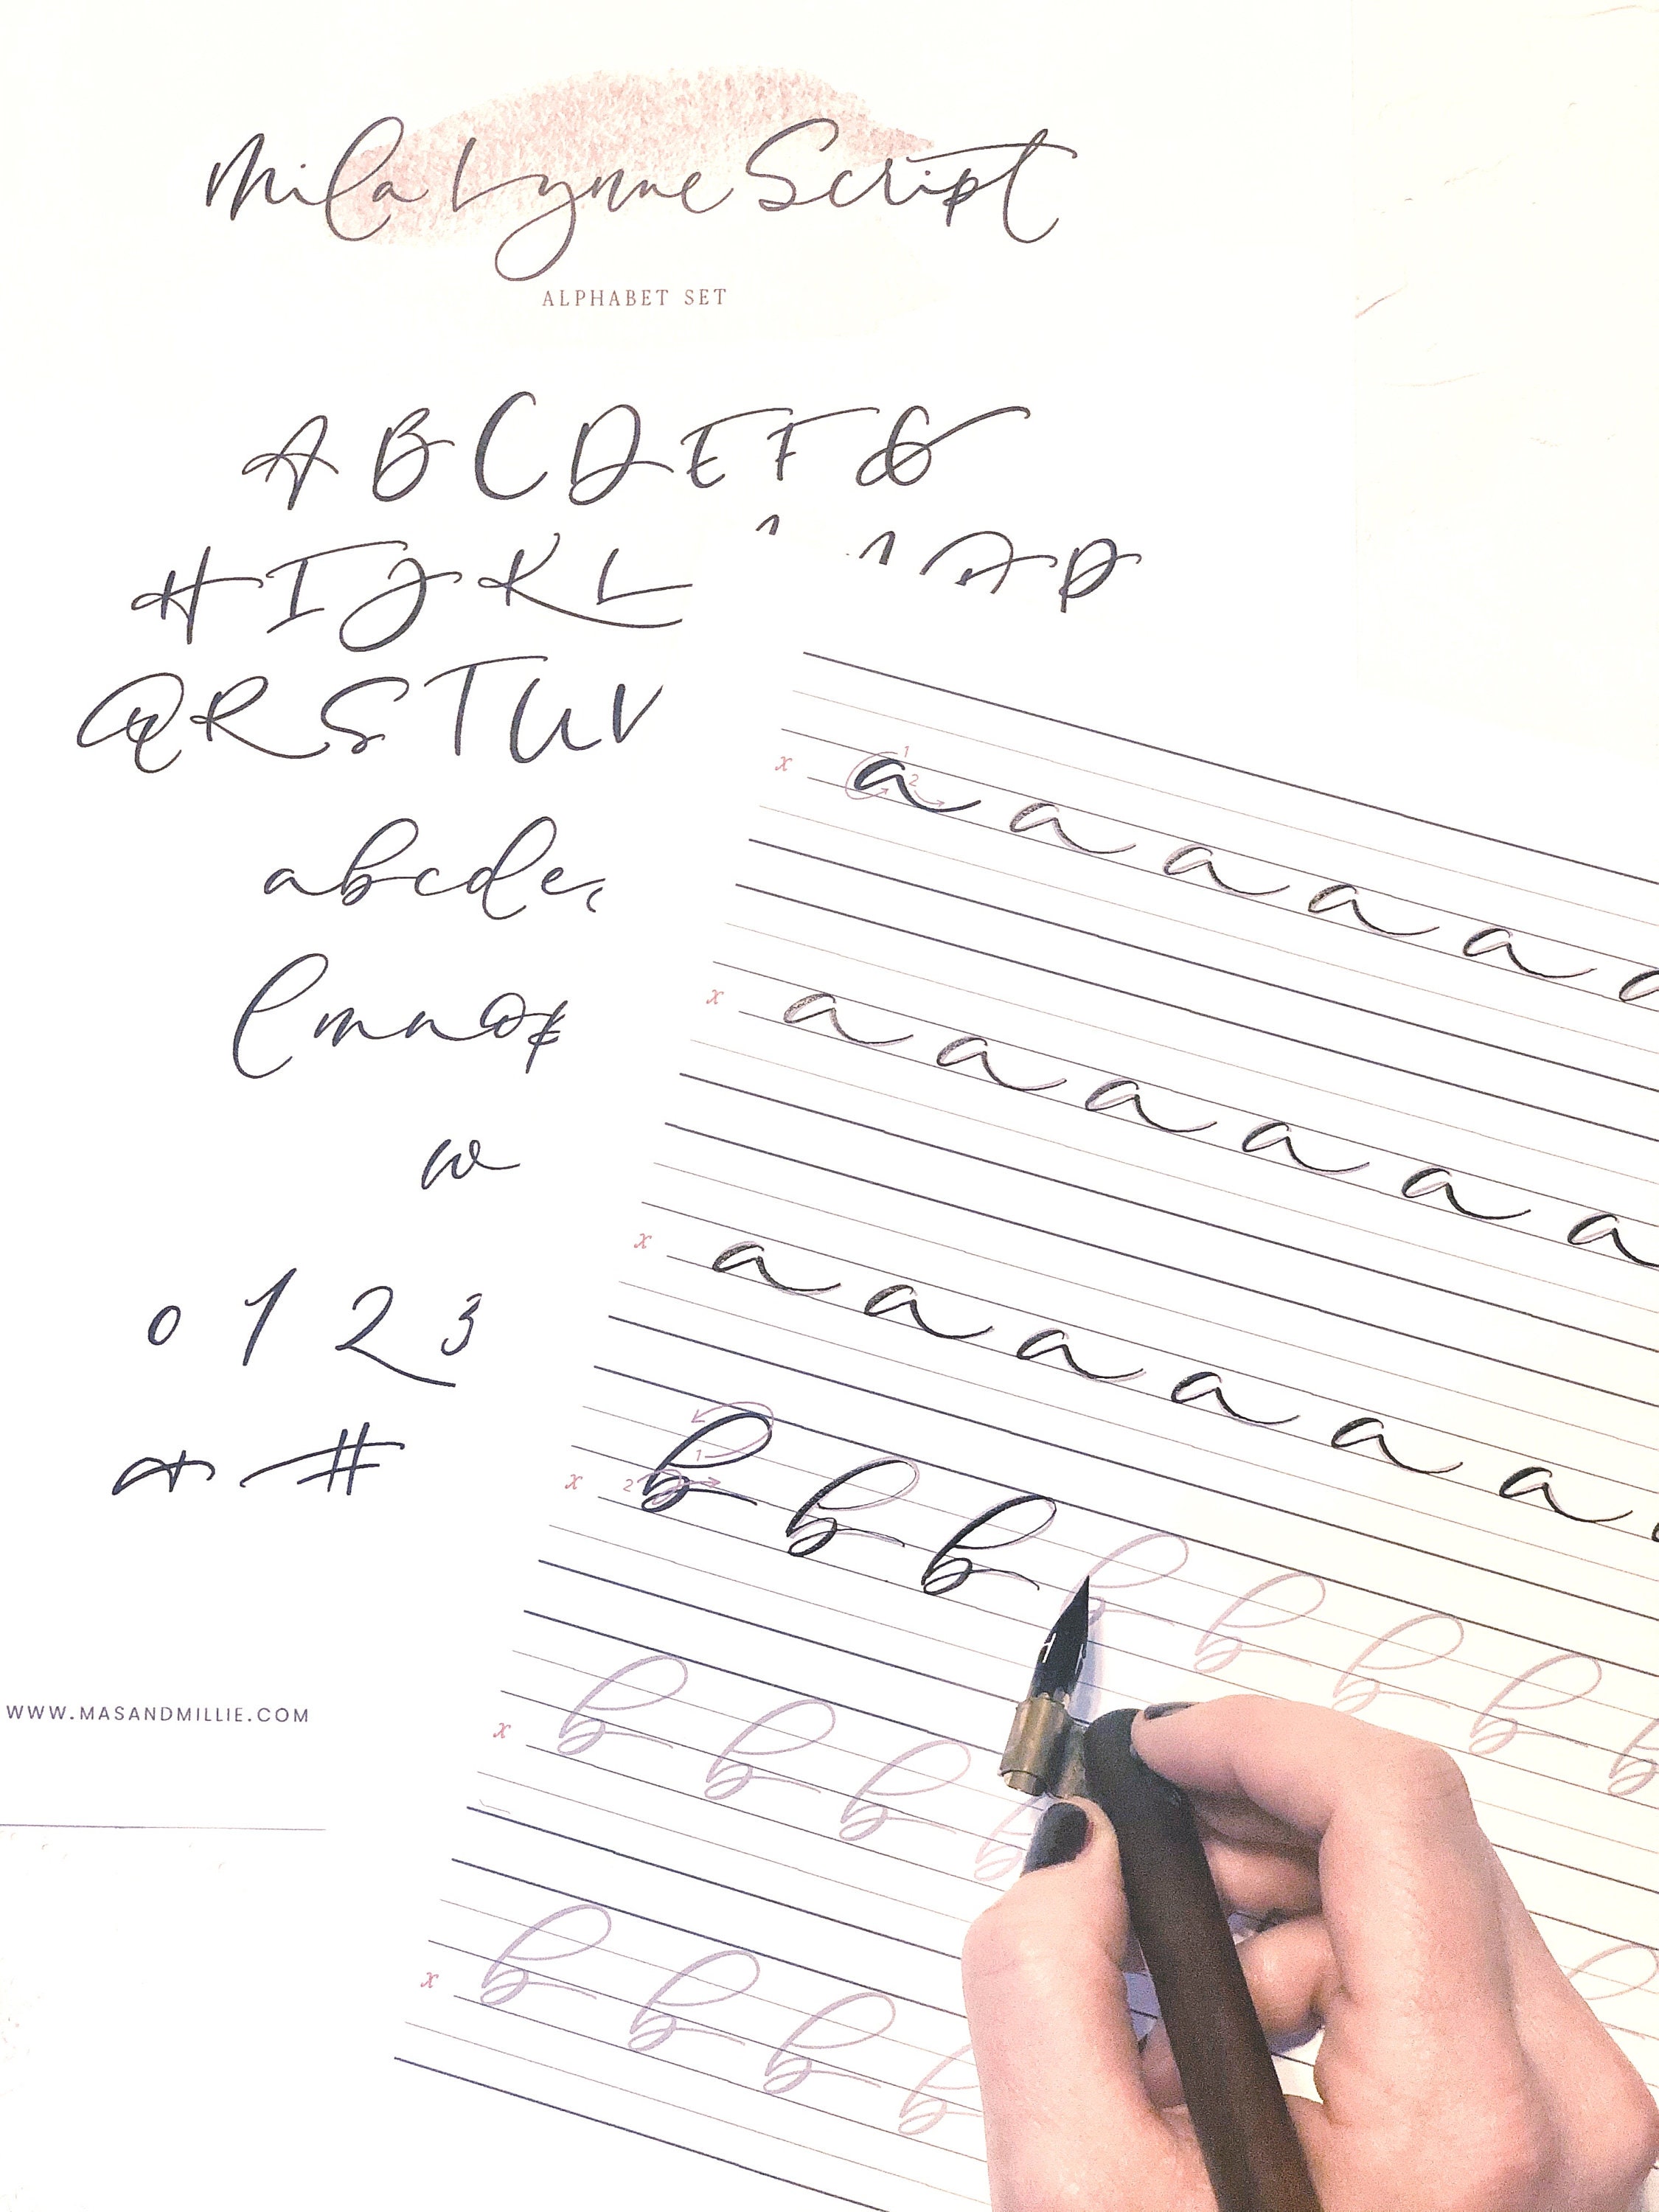 Mila Lynne Script
ALPHABET SET
A B C D E F G
H I J K L P
Q R S T U V
a b c d e
l m n o p
w
0 1 2 3
#
WWW.MASANDMILLIE.COM
x a 1 2 a a a a
x a a a a a a
x a a a a a a
x b 1 2 b b b b b b
x b b b b
x b b b b